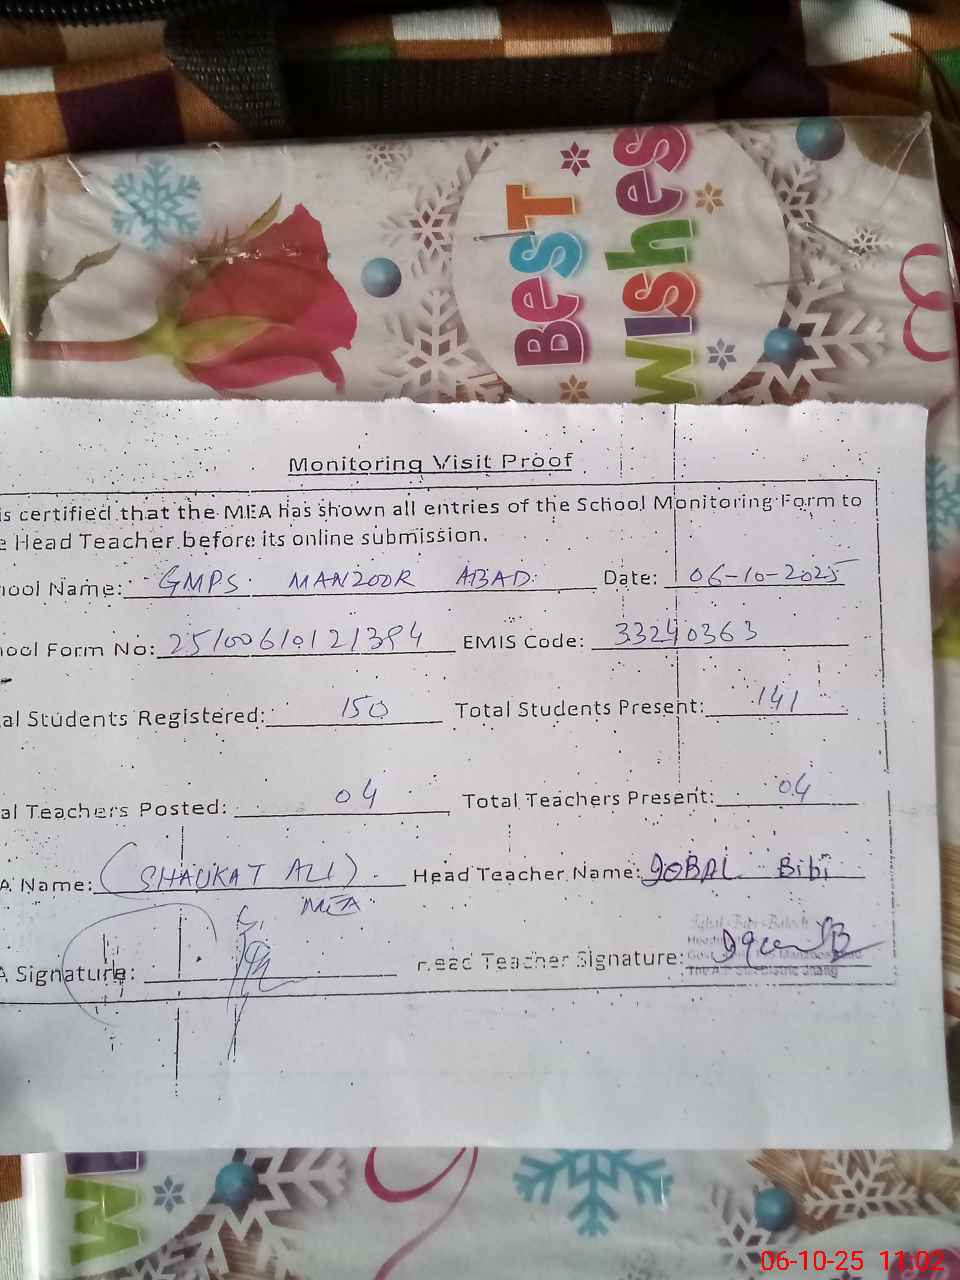 BEST
WISHES
Monitoring Visit Proof
is certified that the MEA has shown all entries of the School Monitoring Form to
e Head Teacher before its online submission.
hool Name: GMPS MANZOOR ABAD Date: 06-10-2025
ool Form No: EMIS Code: 33240363
al Students Registered: 150 Total Students Present: 141
al Teachers Posted: 04 Total Teachers Present: 04
A Name: (SHAUKAT ALI) Head Teacher Name: IQBAL Bibi
MEA
A Signature: Head Teacher Signature:
06-10-25 11:02